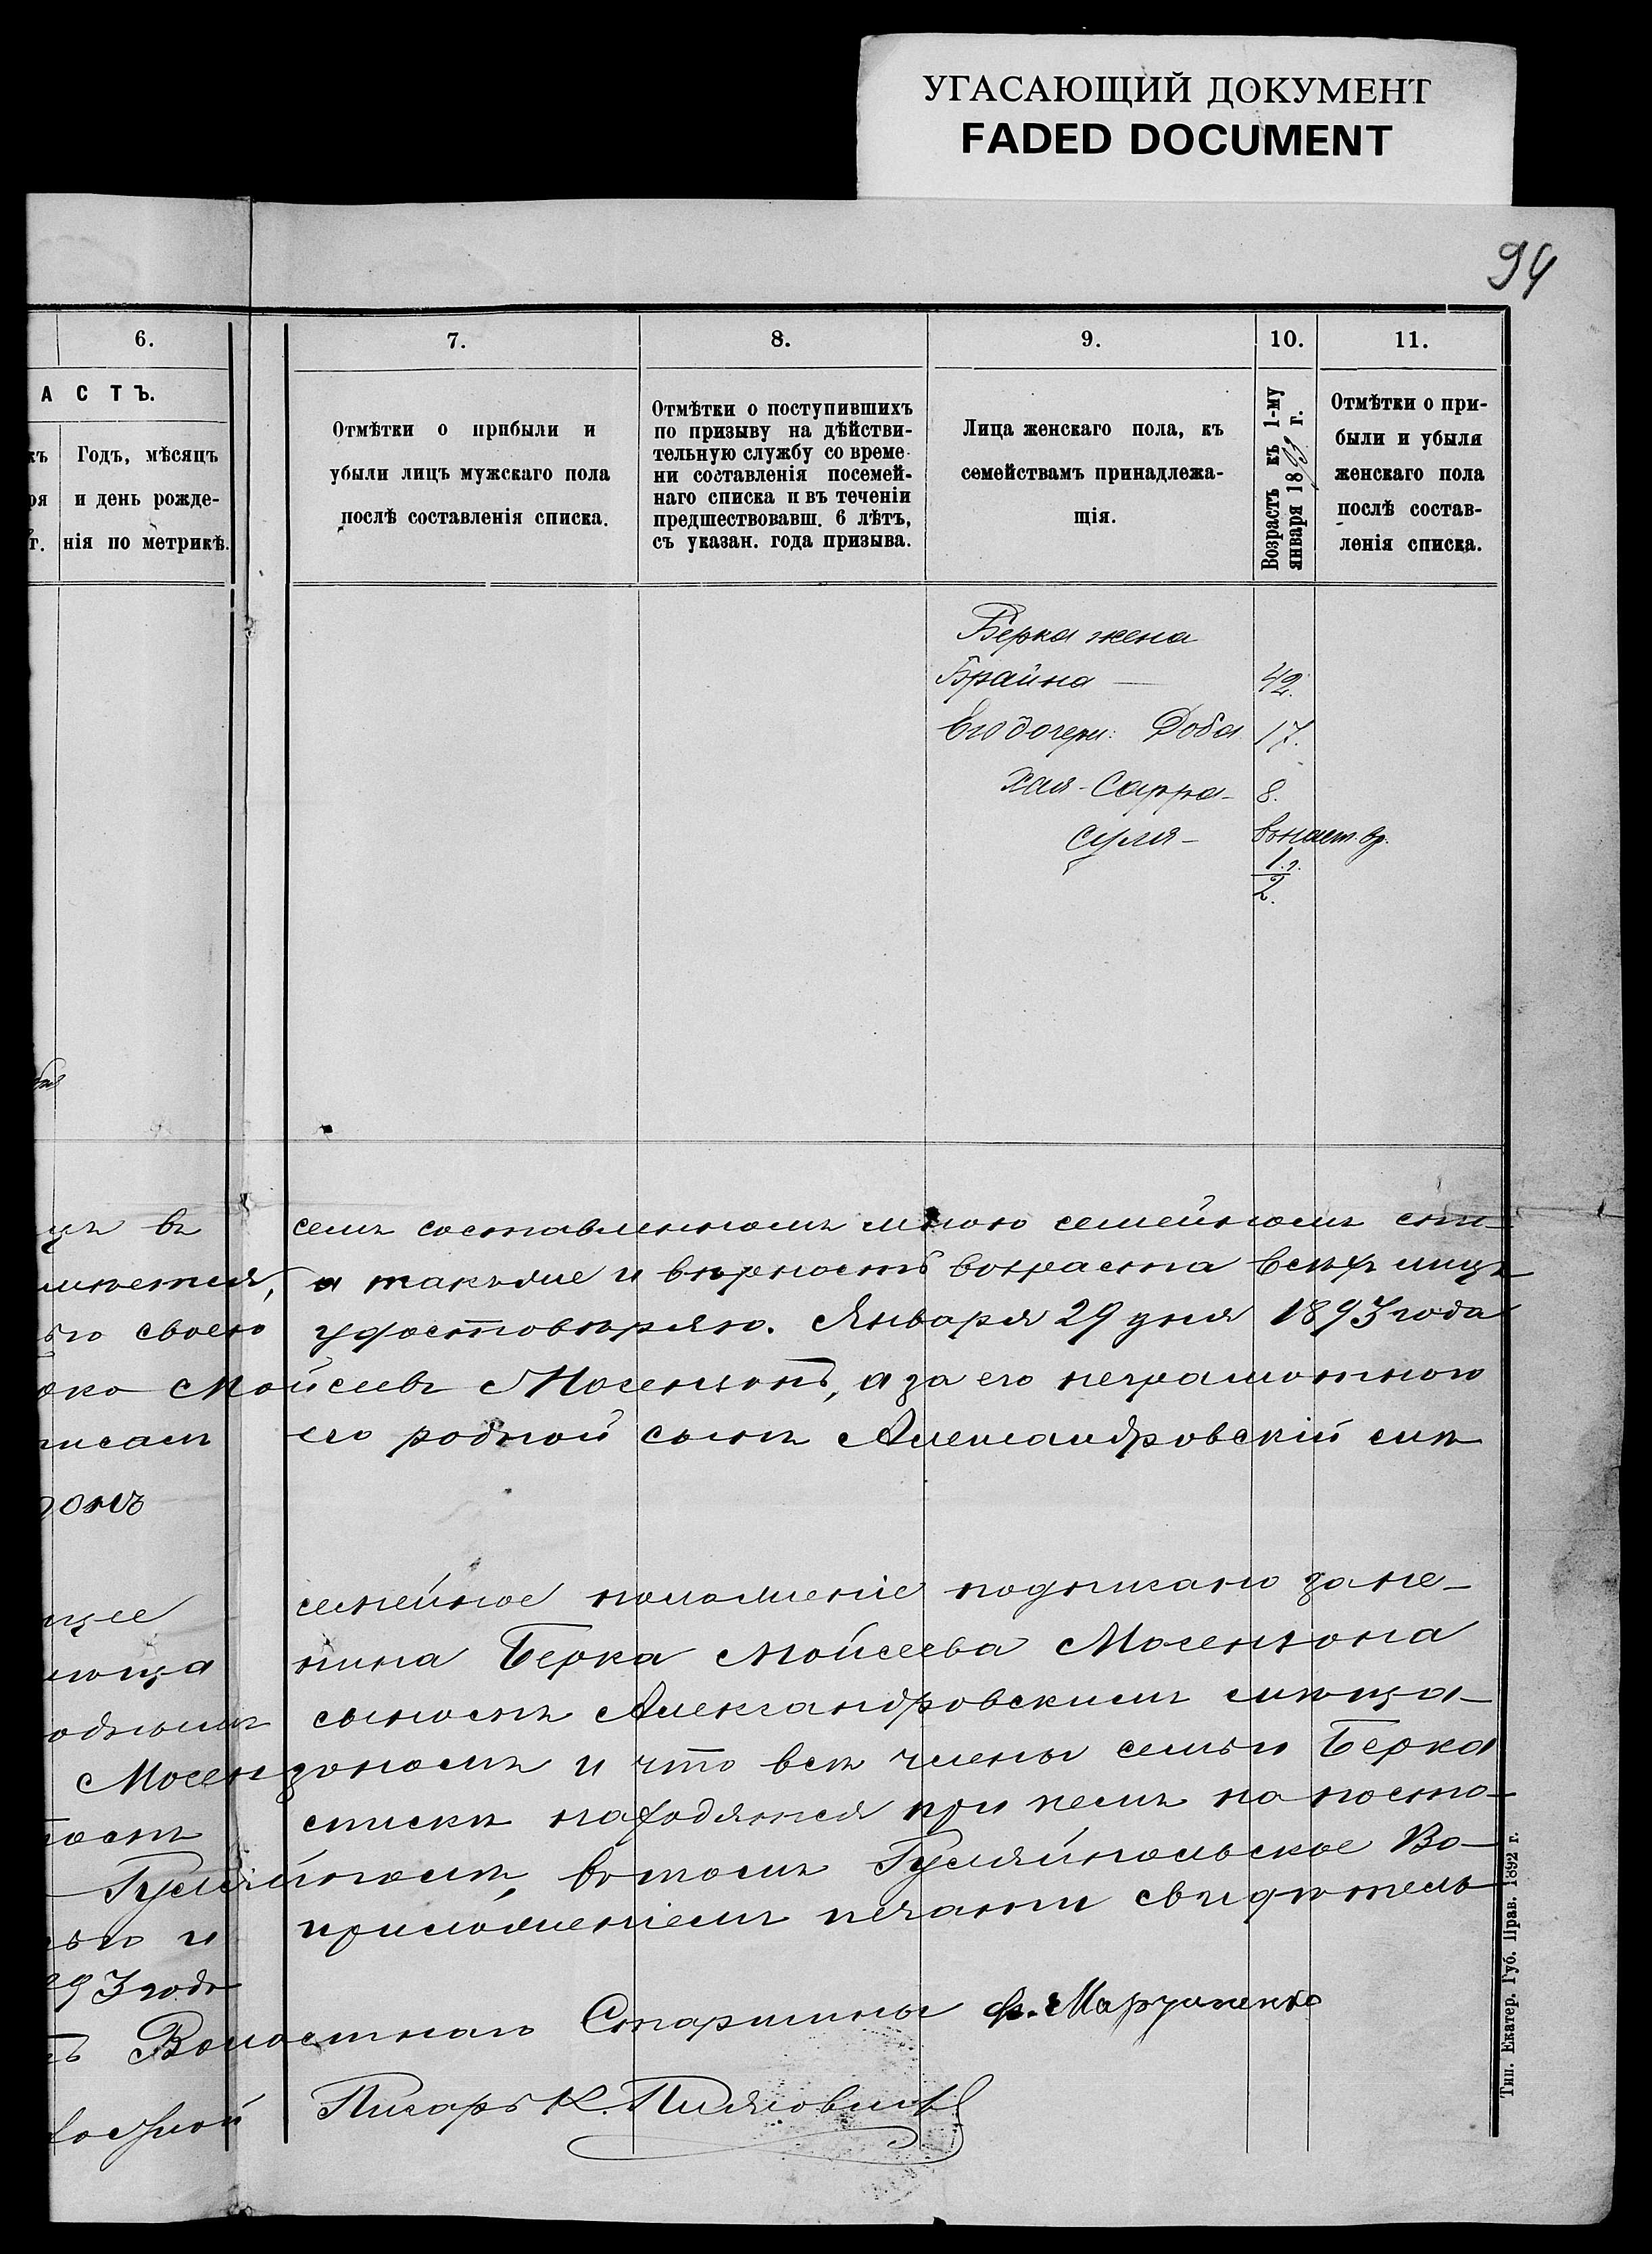 УГАСАЮЩИЙ ДОКУМЕНТ
FADED DOCUMENT
94
6.
7.
8.
9.
10.
11.
А С Т Ъ.
Годъ, мѣсяцъ
и день рожде-
нія по метрикѣ.
Отмѣтки о прибыли и
убыли лицъ мужскаго пола
послѣ составленія списка.
Отмѣтки о поступившихъ
по призыву на дѣйстви-
тельную службу со време-
ни составленія посемей-
наго списка и въ теченіи
предшествовавш. 6 лѣтъ,
съ указан. года призыва.
Лица женскаго пола, къ
семействамъ принадлежа-
щія.
Возрастъ къ 1-му
января 1893 г.
Отмѣтки о при-
были и убыля
женскаго пола
послѣ состав-
ленія списка.
Берка жена
Брайна — 42.
Его дочери: Доба 17.
Хая-Сарра- 8.
Суля- въ наст. вр.
1/2 г.
въ семъ составленномъ мною семейномъ спи-
а также и вѣрность возраста всѣхъ лицъ
своею удостовѣряю. Января 29 дня 1893 года
Мойсеевъ Мосензонъ, а за его неграмотного
его родной сынъ Александровскій мѣ
семейное положеніе подписано за не-
нина Берка Мойсеева Мосензона
сыномъ Александровскимъ мѣща-
Мосензономъ и что всѣ члены семьи Берка
спискѣ находятся при немъ на посто-
Гуляйполѣ, въ томъ Гуляйпольское Во-
и приложеніемъ печати свидѣтель
93 года
Волостнаго Старшины
Писарь К.
Тип. Екатер. Губ. Прав. 1892 г.